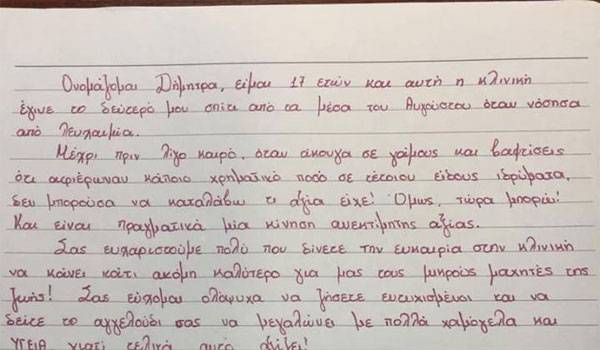 Ονομάζομαι Δήμητρα, είμαι 17 ετών και αυτή η κλινική
έγινε το δεύτερό μου σπίτι από τα μέσα του Αυγούστου όταν νόσησα
από λευχαιμία.
Μέχρι πριν λίγο καιρό, όταν άκουγα σε γάμους και βαφτίσεις
ότι αφιέρωναν κάποιο χρηματικό ποσό σε τέτοιου είδους ιδρύματα,
δεν μπορούσα να καταλάβω τι αξία είχε! Όμως, τώρα μπορώ!
Και είναι πραγματικά μία κίνηση ανεκτίμητης αξίας.
Σας ευχαριστούμε πολύ που δίνετε την ευκαιρία στην κλινική
να κάνει κάτι ακόμη καλύτερο για μας τους μικρούς μαχητές της
ζωής! Σας εύχομαι ολόψυχα να ζήσετε ευτυχισμένοι και να
δείτε το αγγελούδι σας να μεγαλώνει με πολλά χαμόγελα και
ΥΓΕΙΑ γιατί τελικά αυτό αξίζει!